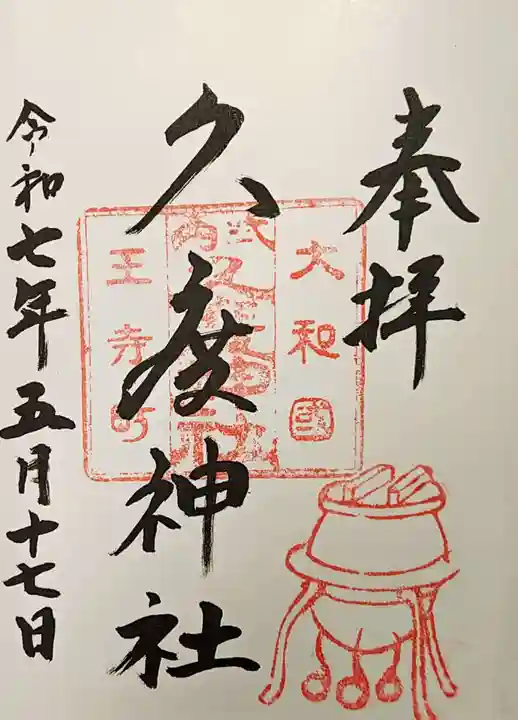 奉拝
大和国
久度神社
王寺町
令和七年五月十七日